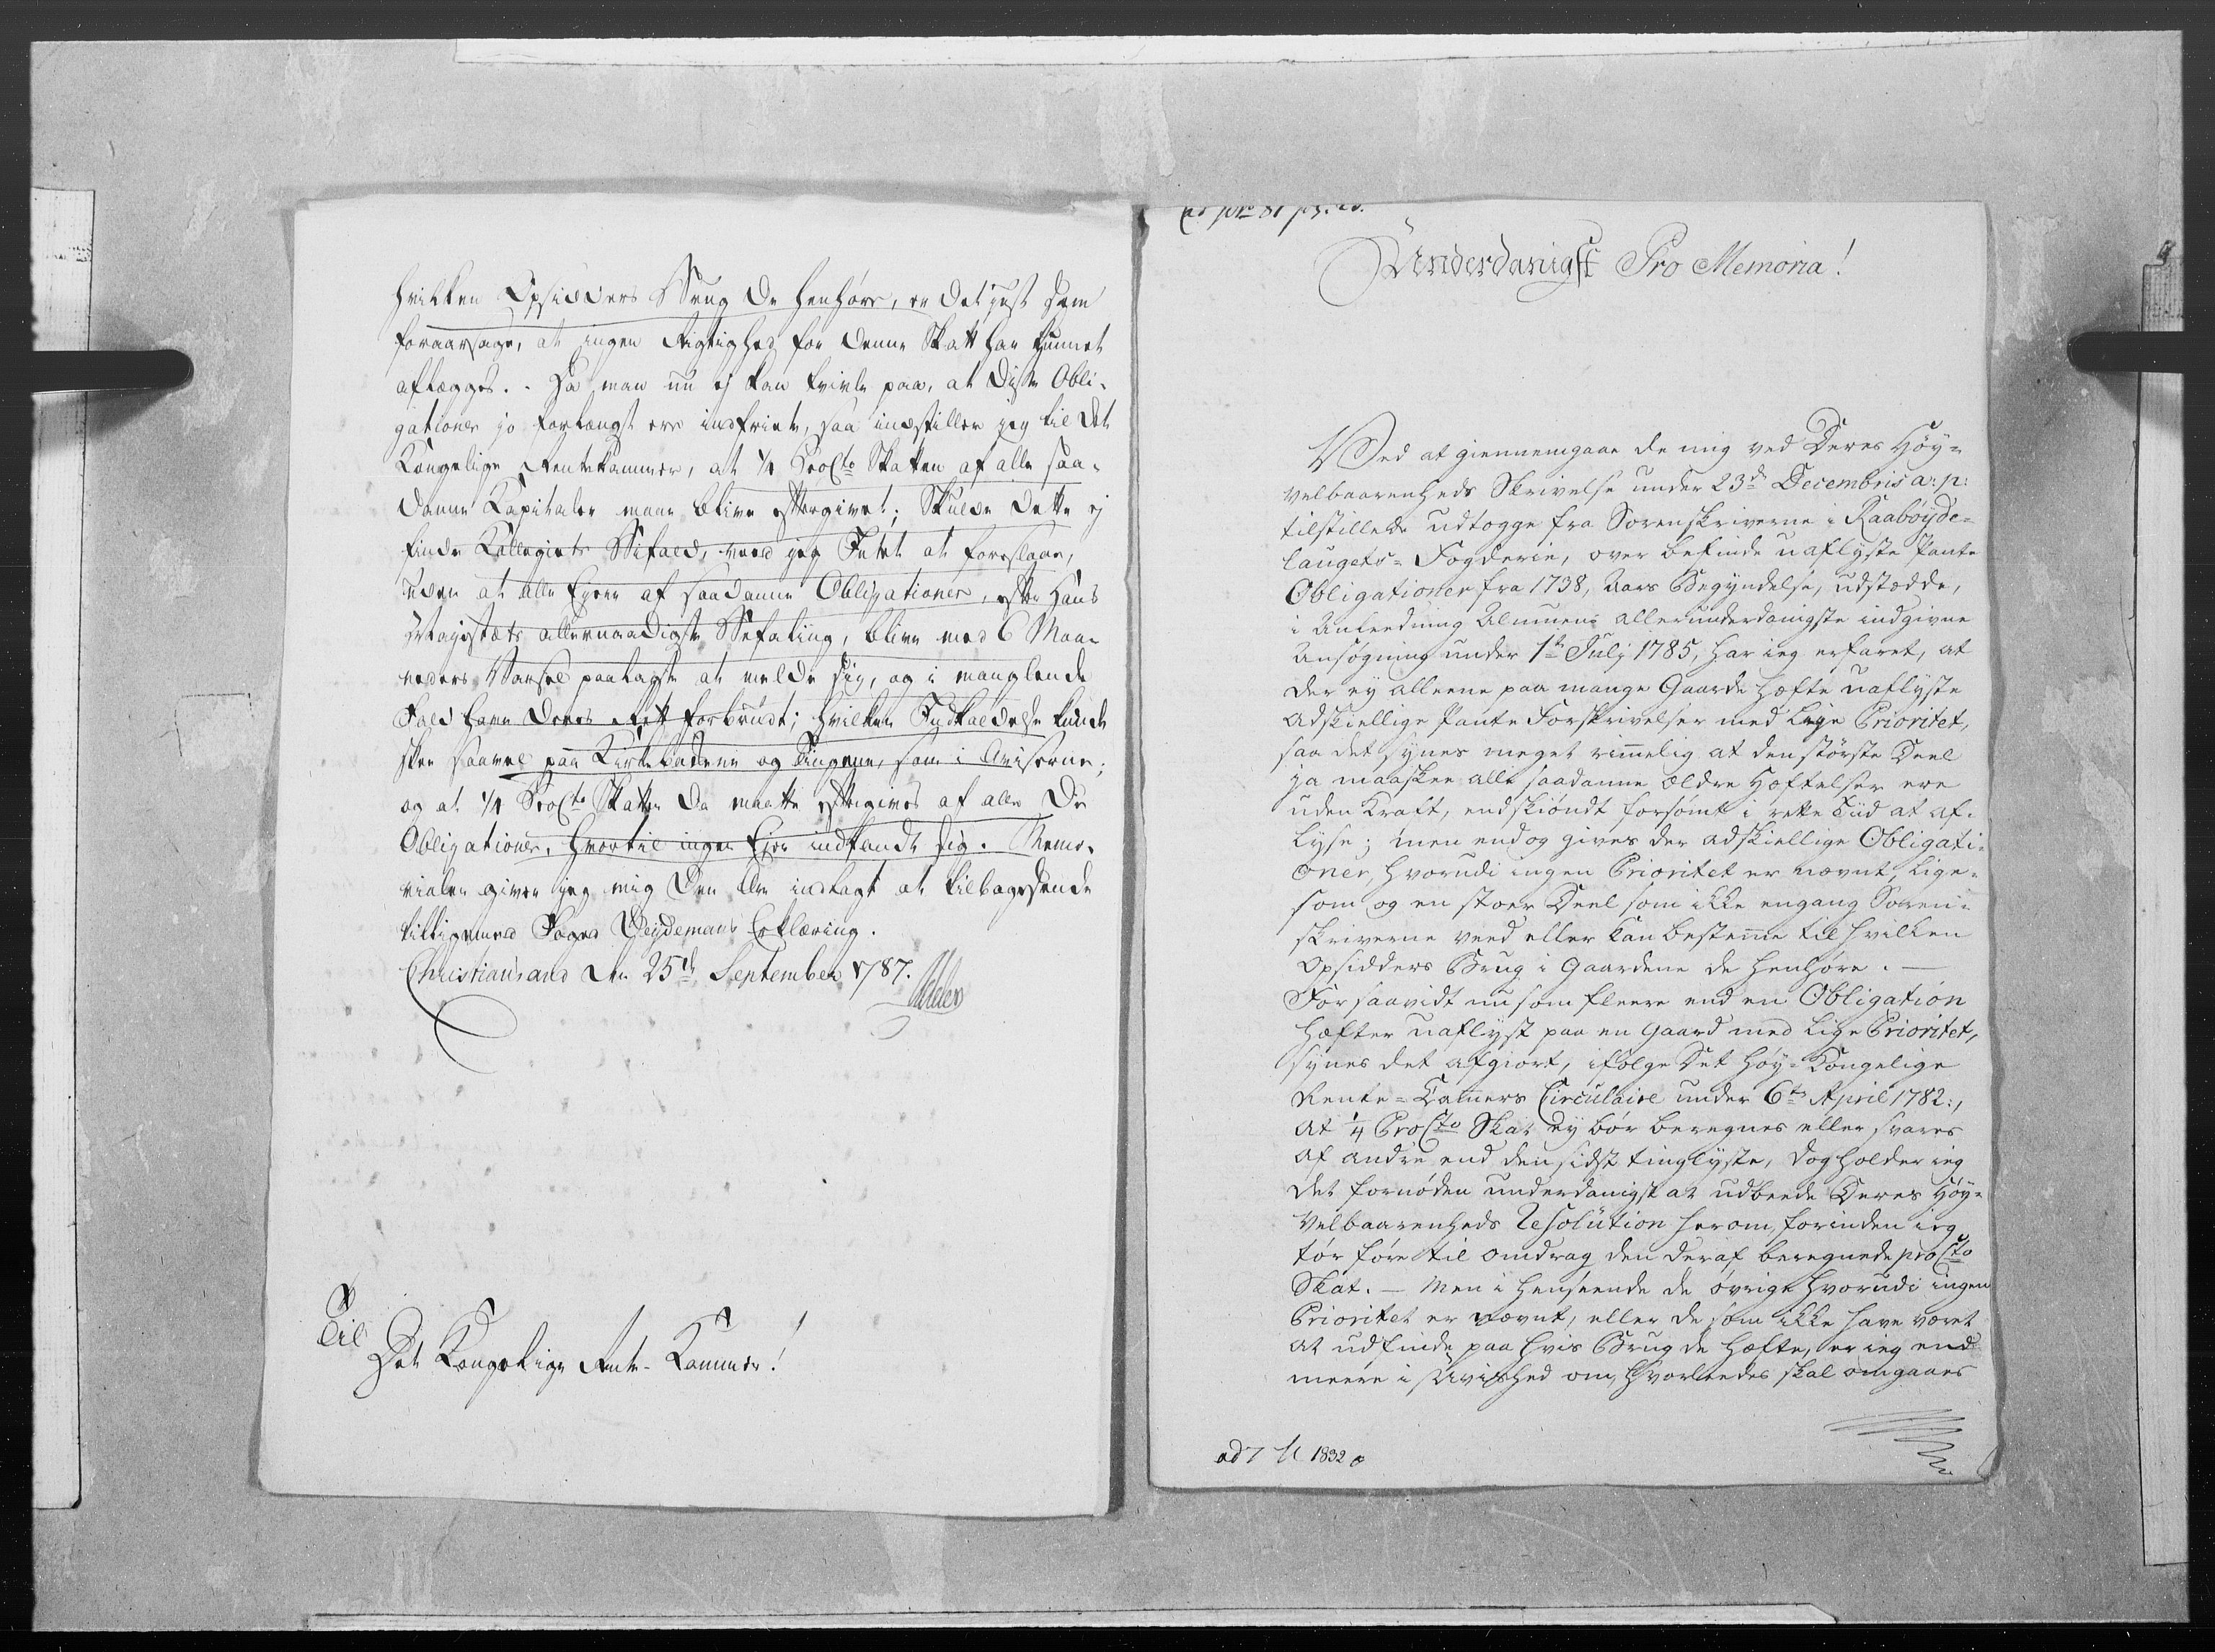 hvilken Opsidders Brug de henhøre, er det just som
foraarsage, at ingen Rigtighed for denne Skatt har kunnet
aflægges. - Da man nu ej kan tvivle paa, at disse Obli-
gationer jo forlængst ere indfriete, saa indstiller jeg til det
Kongelige Rentekammer, at 1/4 ProCto Skatten af alle saa-
danne Kapitaler maae blive eftergivet; Skulde dette ej
finde Kollegiets Bifald, veed jeg Intet at foreslaae,
uden at alle Ejere af saadanne Obligationer, efter Hans
Majestæts allernaadigste Befaling, blive med 6 Maa-
neders Varsel paalagte at melde sig, og i manglende
Fald have deres Rett forbrudt; hvilken Indkaldelse kunde
skee saavel paa Kirkebakkene og Tingene, som i Aviserne;
og at 1/4 ProCto Skatten da maatte eftergives af alle de
Obligationer, hvortil ingen Ejer indfandt sig. Memo-
rialen giver jeg mig den Ære indlagt at tilbagesende
tilligemed Foged Weydemans Erklæring.
Christiansand den 25de September 1787.
Adeler
Til
Det Kongelige Rente-Kammer!
Underdanigst Pro Memoria!
Ved at giennemgaae de mig ved Deres Høy-
velbaarenheds Skrivelse under 23de Decembris a: p:
tilstillede Udtogge fra Sorenskriverne i Raabøyde-
laugets-Fogderie, over befindende uaflyste Pante
Obligationer fra 1738, Aars Begyndelse, udstædde,
i Anledning Almuens allerunderdanigste indgivne
Ansøgning under 1te Julj 1785, har ieg erfaret, at
der ey alleene paa mange Gaarde hæfte uaflyste
adskiellige Pante Forskrivelser med lige Prioritet,
saa det synes meget rimelig at den største Deel
ja maaskee alle saadanne ældre Hæftelser ere
uden Kraft, endskiøndt forsømt i rette Tiid at af-
lyse; men endog gives der adskiellige Obligati-
oner, hvorudi ingen Prioritet er nævnt, lige-
som og en stoer Deel som ikke engang Soren-
skriverne veed eller kan bestemme til hvilken
Opsidders Brug i Gaardene de henhøre. -
For saavidt nu som fleere end en Obligation
hæfter uaflyst paa en Gaard med lige Prioritet,
synes det afgiort, ifølge Det Høy-Kongelige
Rente-Camers Circulaire under 6te April 1782:,
at 1/4 ProCto Skat ey bør beregnes eller svares
af andre end den sidst tinglyste, dog holder ieg
det fornøden underdanigst at udbeede Deres Høy-
Velbaarenheds Resolution herom, forinden ieg
tør føre til Omdrag den deraf beregnede proCto
Skat. - Men i Henseende de øvrige hvorudi ingen
Prioritet er nævnt, eller de som ikke have været
at udfinde paa hvis Brug de hæfte, er ieg end
meere i Uvished om, hvorleedes skal omgaaes
ad 7 1832